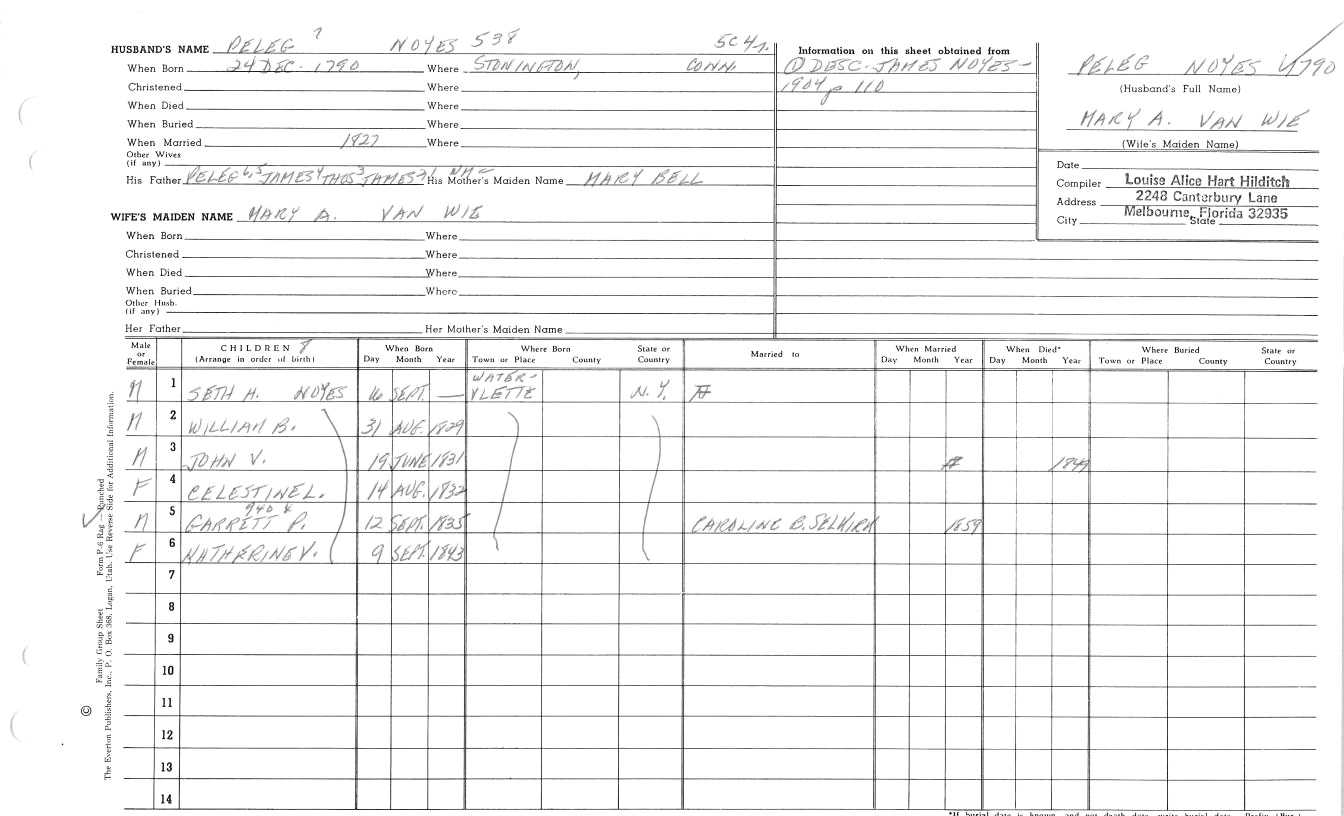 HUSBAND'S NAME PELEG 7 NOYES 538 5C 4
When Born 24 DEC. 1790 Where STONINGTON, CONN.
Christened Where
When Died Where
When Buried Where
When Married 1827 Where
Other Wives
(if any)
His Father PELEG 6,5 JAMES 4 THOS 3 JAMES 2,1 His Mother's Maiden Name MARY BELL
WIFE'S MAIDEN NAME MARY A. VAN WIE
When Born Where
Christened Where
When Died Where
When Buried Where
Other Husb.
(if any)
Her Father Her Mother's Maiden Name
Information on this sheet obtained from
① DESC. JAMES NOYES-
1904 p 110
PELEG NOYES 1790
(Husband's Full Name)
MARY A. VAN WIE
(Wife's Maiden Name)
Date
Compiler Louise Alice Hart Hilditch
Address 2248 Canterbury Lane
Melbourne, Florida 32935
City State
Male or Female CHILDREN 8 (Arrange in order of birth) When Born Day Month Year Where Born Town or Place County State or Country Married to When Married Day Month Year When Died* Day Month Year Where Buried Town or Place County State or Country
M 1 SETH H. NOYES 16 SEPT. — WATER-VLETTE N.Y. #
M 2 WILLIAM B. 31 AUG. 1829
M 3 JOHN V. 19 JUNE 1831 # 1849
F 4 CELESTINE L. 14 AUG. 1832
940 x
M 5 GARRETT P. 12 SEPT. 1835 CAROLINE B. SELKIRK 1859
F 6 KATHERINE V. 9 SEPT. 1843
7
8
9
10
11
12
13
14
© Family Group Sheet Form P-6 Rag — Punched
The Everton Publishers, Inc., P. O. Box 368, Logan, Utah. Use Reverse Side for Additional Information.